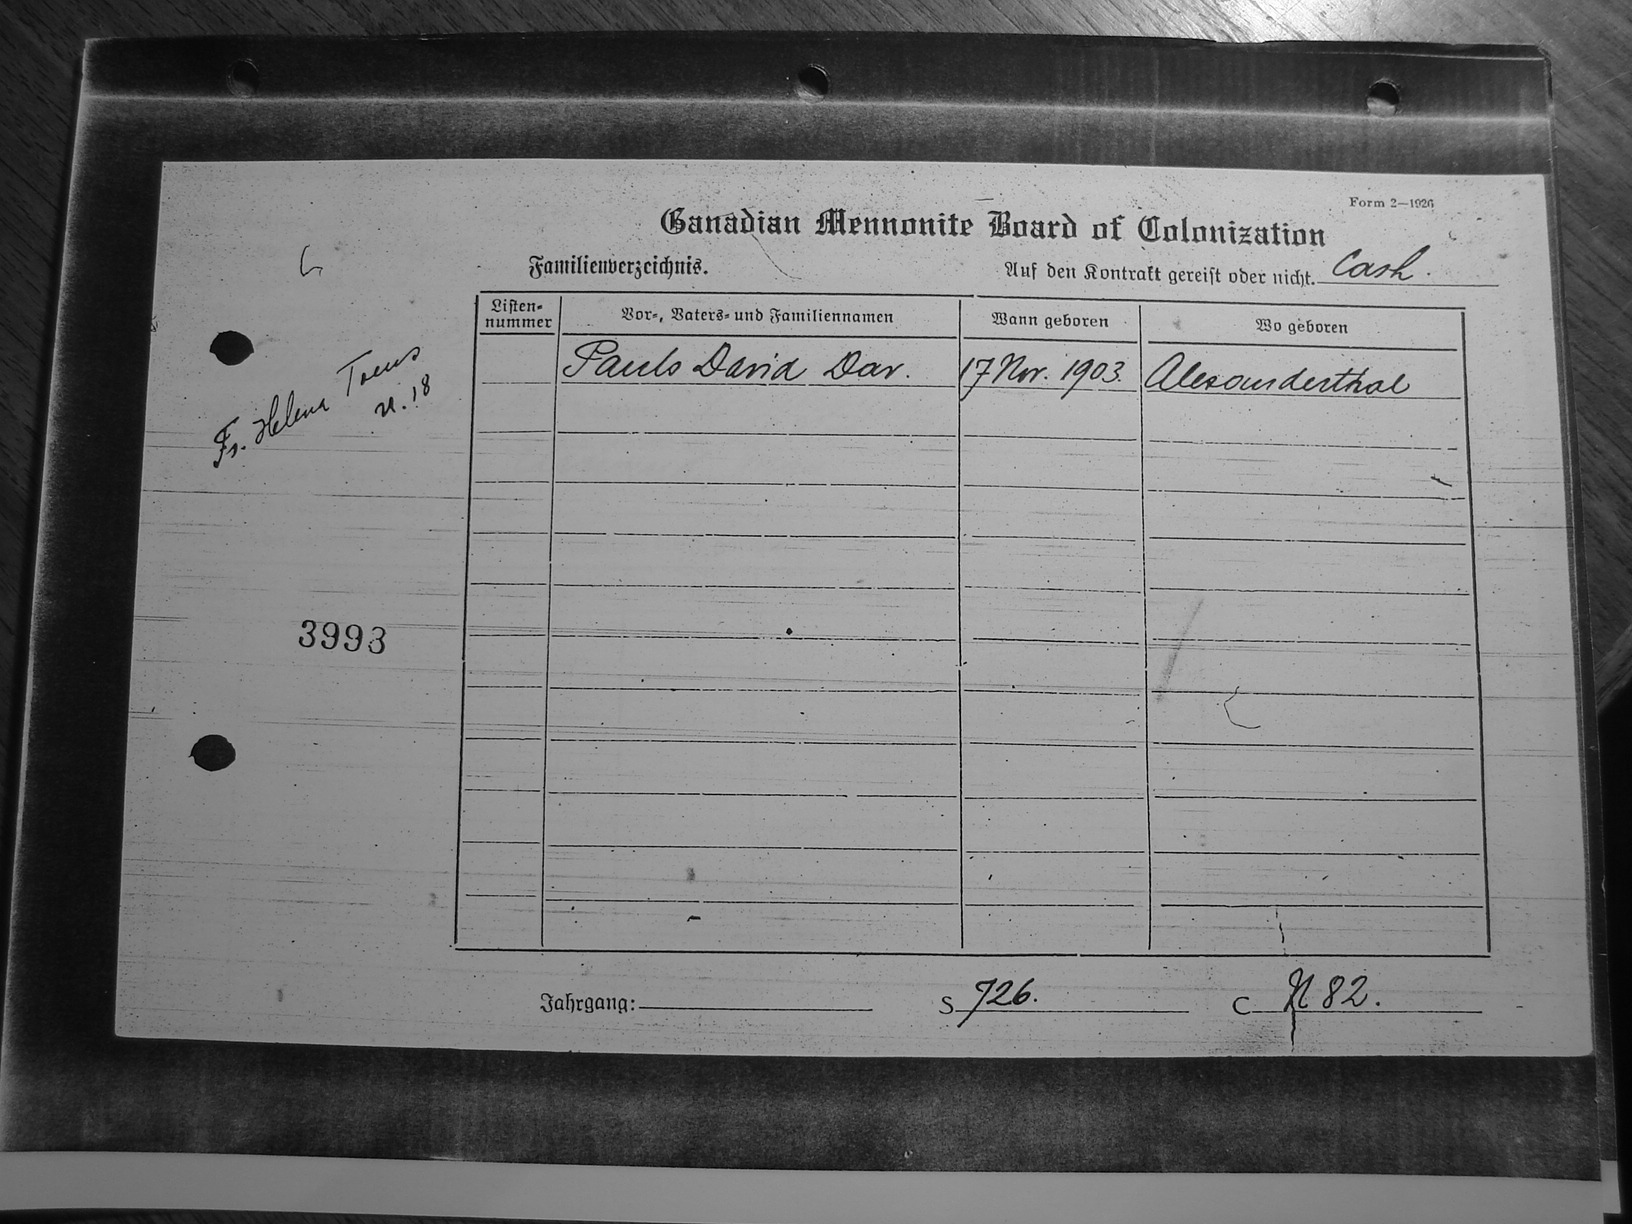 Form 2—1926
Canadian Mennonite Board of Colonization
Familienverzeichnis.
Auf den Kontrakt gereist oder nicht. Cash.
Listen-
nummer
Vor-, Vaters- und Familiennamen
Wann geboren
Wo geboren
Pauls David Dav.
17 Nov. 1903.
Alexanderthal
Fr. Helena Toews
N. 18
3993
Jahrgang:
S 726.
C N 82.